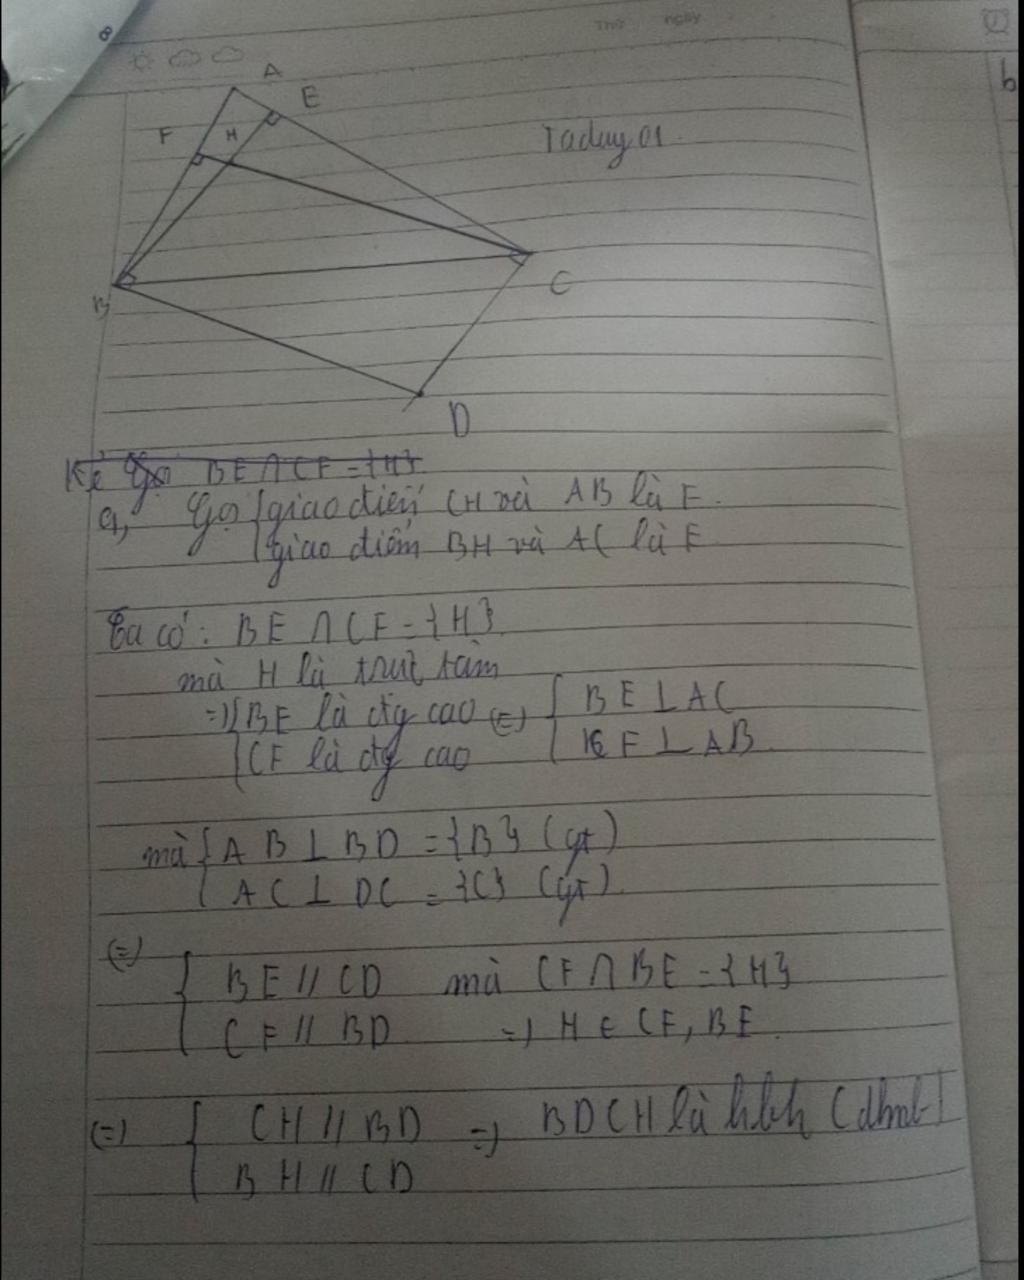 Thứ ngày
8
b
A
E
F
H
Taduy01
B
C
D
Kẻ Gọi BE ∩ CF = {H}
a, Gọi { giao điểm CH và AB là F.
giao điểm BH và AC là E
Ta có : BE ∩ CF = {H}
mà H là trực tâm
=> { BE là đg cao (=) { BE ⊥ AC
CF là đg cao CF ⊥ AB
mà { AB ⊥ BD = {B} (gt)
AC ⊥ DC = {C} (gt)
(=) { BE // CD mà CF ∩ BE = {H}
CF // BD => H ∈ CF, BE.
(=) { CH // BD => BDCH là hbh (dhnb)
BH // CD